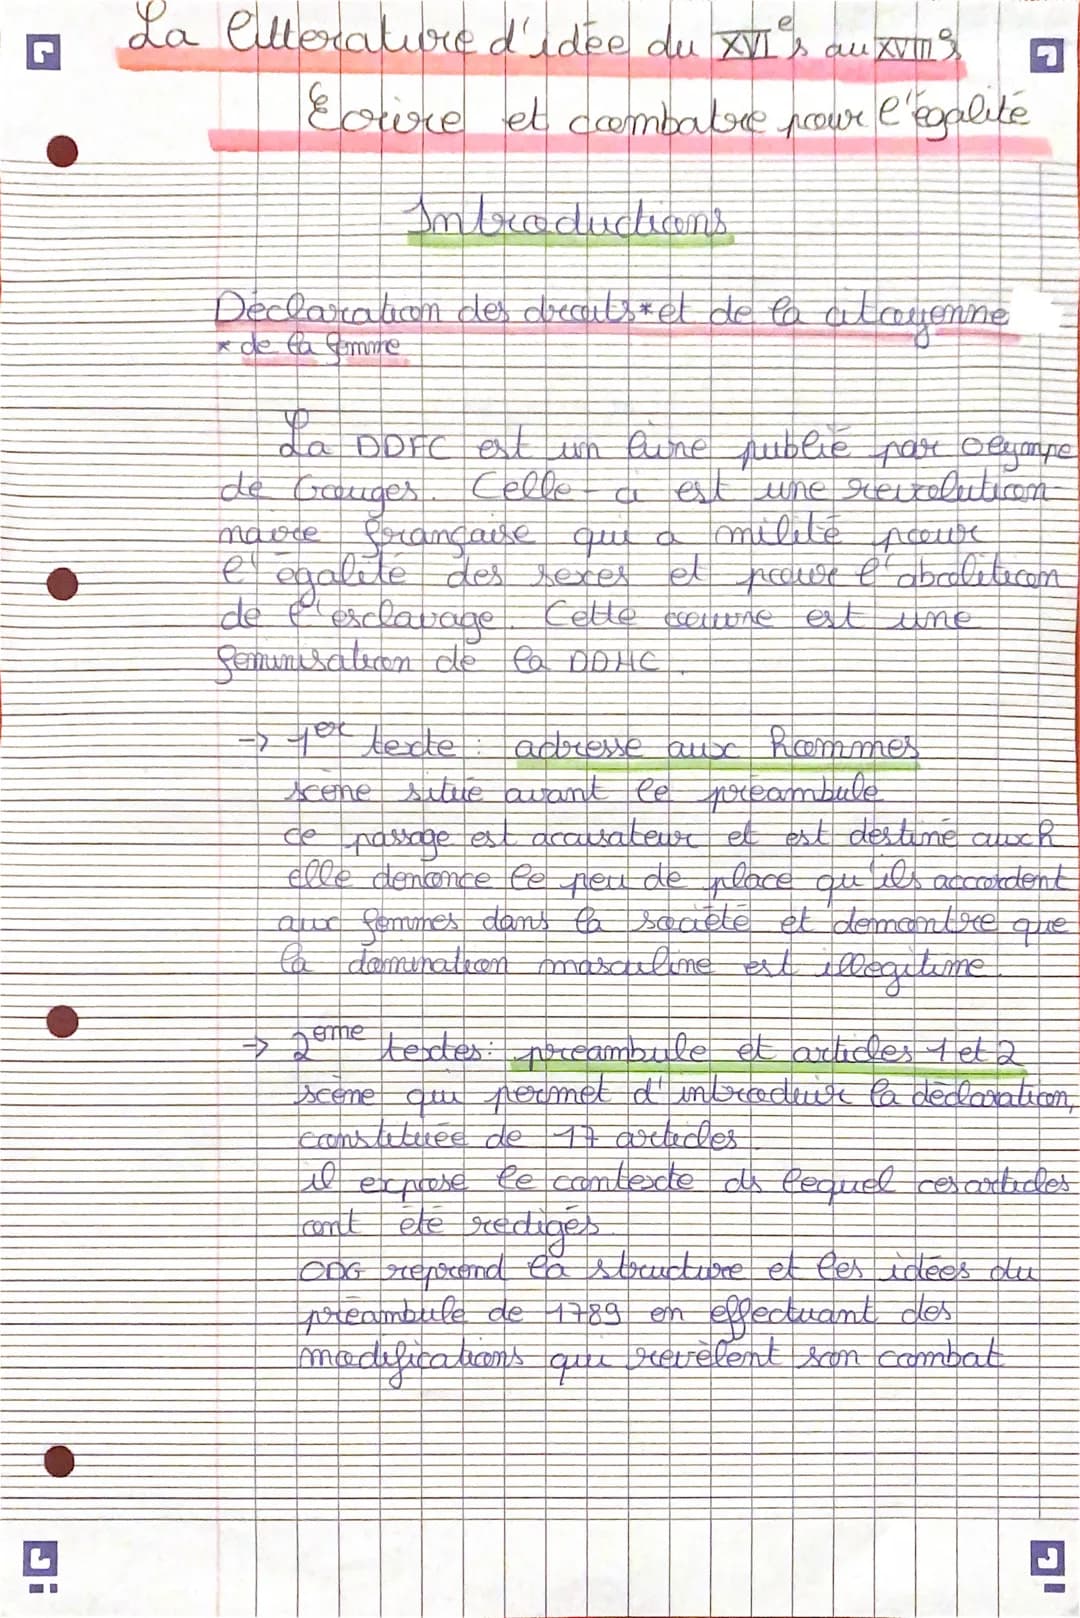 La litterature d'idée du XVIe s au XVIII s
Ecrire et combatre pour l'égalité
Introductions
Déclaration des droits* et de la citoyenne
* de la femme
La DDFC est un livre publié par Olympe
de Gouges. Celle-ci est une revolution-
naire française qui a milité pour
l'égalité des sexes et pour l'abolition
de l'esclavage. Cette oeuvre est une
feminisation de la DDHC.
-> 1er texte : adresse aux hommes
scène situé avant le préambule
ce passage est accusateur et est destiné aux h
elle denonce le peu de place qu'ils accordent
aux femmes dans la société et demontre que
la domination masculine est illegitime.
-> 2eme textes: preambule et articles 1 et 2
scène qui permet d'introduire la déclaration,
constituée de 17 articles.
il expose le contexte ds lequel ces articles
ont été redigés.
ODG reprend la structure et les idées du
préambule de 1789 en effectuant des
modifications qui revèlent son combat